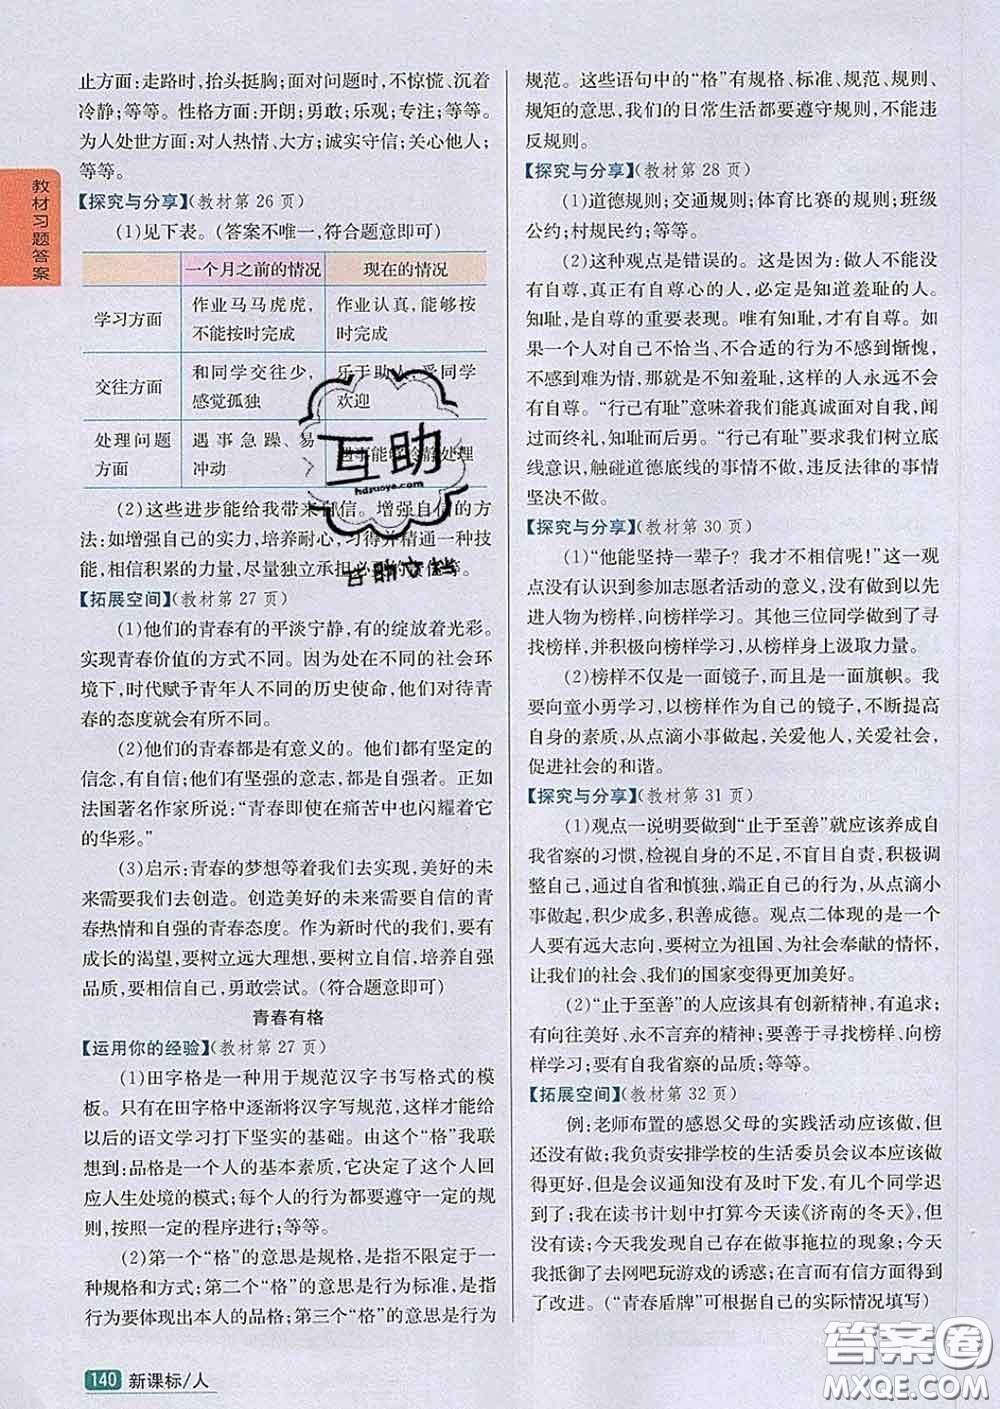 教材习题答案
止方面:走路时,抬头挺胸;面对问题时,不惊慌、沉着
冷静;等等。性格方面:开朗;勇敢;乐观;专注;等等。
为人处世方面:对人热情、大方;诚实守信;关心他人;
等等。
【探究与分享】(教材第 26 页)
(1)见下表。(答案不唯一,符合题意即可)
一个月之前的情况 现在的情况
学习方面 作业马马虎虎,不能按时完成 作业认真,能够按时完成
交往方面 和同学交往少,感觉孤独 乐于助人,受同学欢迎
处理问题方面 遇事急躁、易冲动 遇事能够冷静处理
(2)这些进步能给我带来自信。增强自信的方
法:如增强自己的实力,培养耐心,习得并精通一种技
能,相信积累的力量,尽量独立承担必要的责任等。
【拓展空间】(教材第 27 页)
(1)他们的青春有的平淡宁静,有的绽放着光彩。
实现青春价值的方式不同。因为处在不同的社会环
境下,时代赋予青年人不同的历史使命,他们对待青
春的态度就会有所不同。
(2)他们的青春都是有意义的。他们都有坚定的
信念,有自信;他们有坚强的意志,都是自强者。正如
法国著名作家所说:“青春即使在痛苦中也闪耀着它
的华彩。”
(3)启示:青春的梦想等着我们去实现,美好的未
来需要我们去创造。创造美好的未来需要自信的青
春热情和自强的青春态度。作为新时代的我们,要有
成长的渴望,要树立远大理想,要树立自信,培养自强
品质,要相信自己,勇敢尝试。(符合题意即可)
青春有格
【运用你的经验】(教材第 27 页)
(1)田字格是一种用于规范汉字书写格式的模
板。只有在田字格中逐渐将汉字写规范,这样才能给
以后的语文学习打下坚实的基础。由这个“格”我联
想到:品格是一个人的基本素质,它决定了这个人回
应人生处境的模式;每个人的行为都要遵守一定的规
则,按照一定的程序进行;等等。
(2)第一个“格”的意思是规格,是指不限定于一
种规格和方式;第二个“格”的意思是行为标准,是指
行为要体现出本人的品格;第三个“格”的意思是行为
规范。这些语句中的“格”有规格、标准、规范、规则、
规矩的意思,我们的日常生活都要遵守规则,不能违
反规则。
【探究与分享】(教材第 28 页)
(1)道德规则;交通规则;体育比赛的规则;班级
公约;村规民约;等等。
(2)这种观点是错误的。这是因为:做人不能没
有自尊,真正有自尊心的人,必定是知道羞耻的人。
知耻,是自尊的重要表现。唯有知耻,才有自尊。如
果一个人对自己不恰当、不合适的行为不感到惭愧,
不感到难为情,那就是不知羞耻,这样的人永远不会
有自尊。“行己有耻”意味着我们能真诚面对自我,闻
过而终礼,知耻而后勇。“行己有耻”要求我们树立底
线意识,触碰道德底线的事情不做,违反法律的事情
坚决不做。
【探究与分享】(教材第 30 页)
(1)“他能坚持一辈子?我才不相信呢!”这一观
点没有认识到参加志愿者活动的意义,没有做到以先
进人物为榜样,向榜样学习。其他三位同学做到了寻
找榜样,并积极向榜样学习,从榜样身上汲取力量。
(2)榜样不仅是一面镜子,而且是一面旗帜。我
要向童小勇学习,以榜样作为自己的镜子,不断提高
自身的素质,从点滴小事做起,关爱他人,关爱社会,
促进社会的和谐。
【探究与分享】(教材第 31 页)
(1)观点一说明要做到“止于至善”就应该养成自
我省察的习惯,检视自身的不足,不盲目自责,积极调
整自己,通过自省和慎独,端正自己的行为,从点滴小
事做起,积少成多,积善成德。观点二体现的是一个
人要有远大志向,要树立为祖国、为社会奉献的情怀,
让我们的社会、我们的国家变得更加美好。
(2)“止于至善”的人应该具有创新精神,有追求;
有向往美好、永不言弃的精神;要善于寻找榜样、向榜
样学习;要有自我省察的品质;等等。
【拓展空间】(教材第 32 页)
例:老师布置的感恩父母的实践活动应该做,但
还没有做;我负责安排学校的生活委员会议本应该做
得更好,但是会议通知没有及时下发,有几个同学迟
到了;我在读书计划中打算今天读《济南的冬天》,但
没有读;今天我发现自己存在做事拖拉的现象;今天
我抵御了去网吧玩游戏的诱惑;在言而有信方面得到
了改进。(“青春盾牌”可根据自己的实际情况填写)
互助
hdzuoye.com
互助文档
140 新课标/人
答案圈
MXQE.COM